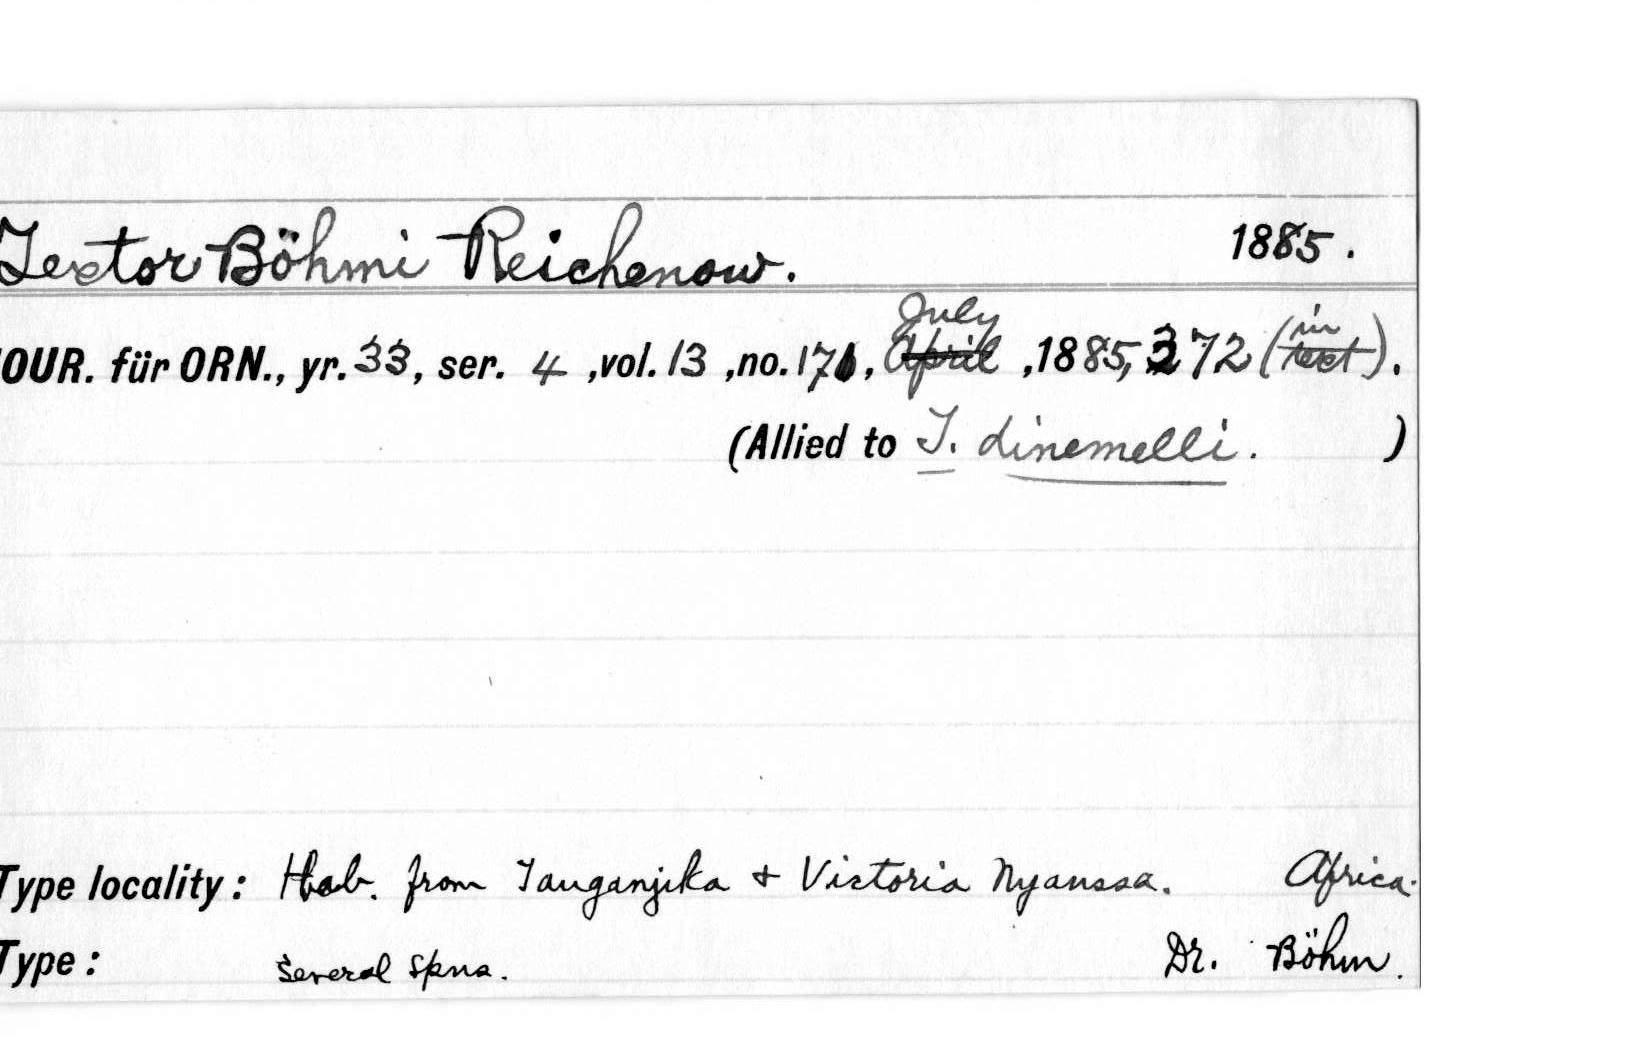 Textor Böhmi Reichenow. 1885.
JOUR. für ORN., yr. 33, ser. 4, vol. 13, no. 171, April July, 1885, 372 (in text).
(Allied to T. dinemelli. )
Type locality: Hab. from Tanganjika + Victoria Nyanssa. Africa.
Type: Several spns. Dr. Böhm.